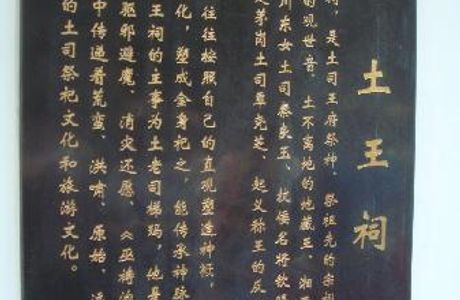 土王祠
祠，是土司王府祭神、祭祖先的宗祠
的观世音、土不离地的地藏王、湘西
川东女土司
是茅岗土司覃尧芝、起义称王的
往往按照自己的直观塑造神
化，塑成金身祀之，能传承神
王祠的主事为土老司梯玛，他
驱邪避魔、消灾还愿、《巫
中传递着荒蛮、洪啸、原始、
的土司祭祀文化和旅游文化。